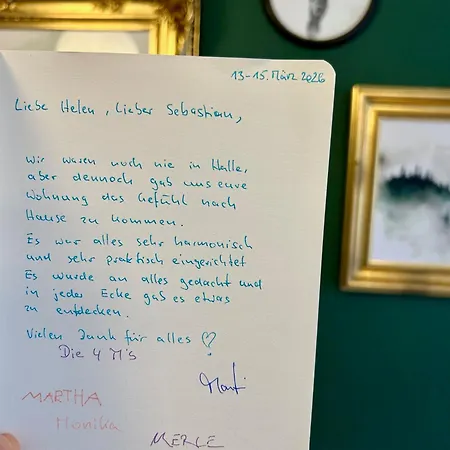 13-15. März 2026
Liebe Helen, Lieber Sebastian,
Wir waren noch nie in Halle,
aber dennoch gab uns eure
Wohnung das Gefühl nach
Hause zu kommen.
Es war alles sehr harmonisch
und sehr praktisch eingerichtet
Es wurde an alles gedacht und
in jeder Ecke gab es etwas
zu entdecken.
Vielen Dank für alles ♡
Die 4 M's
MARTHA
Monika
MERLE